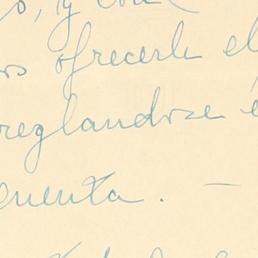 o, y con
os ofrecerle el
reglandose é
cuenta. —